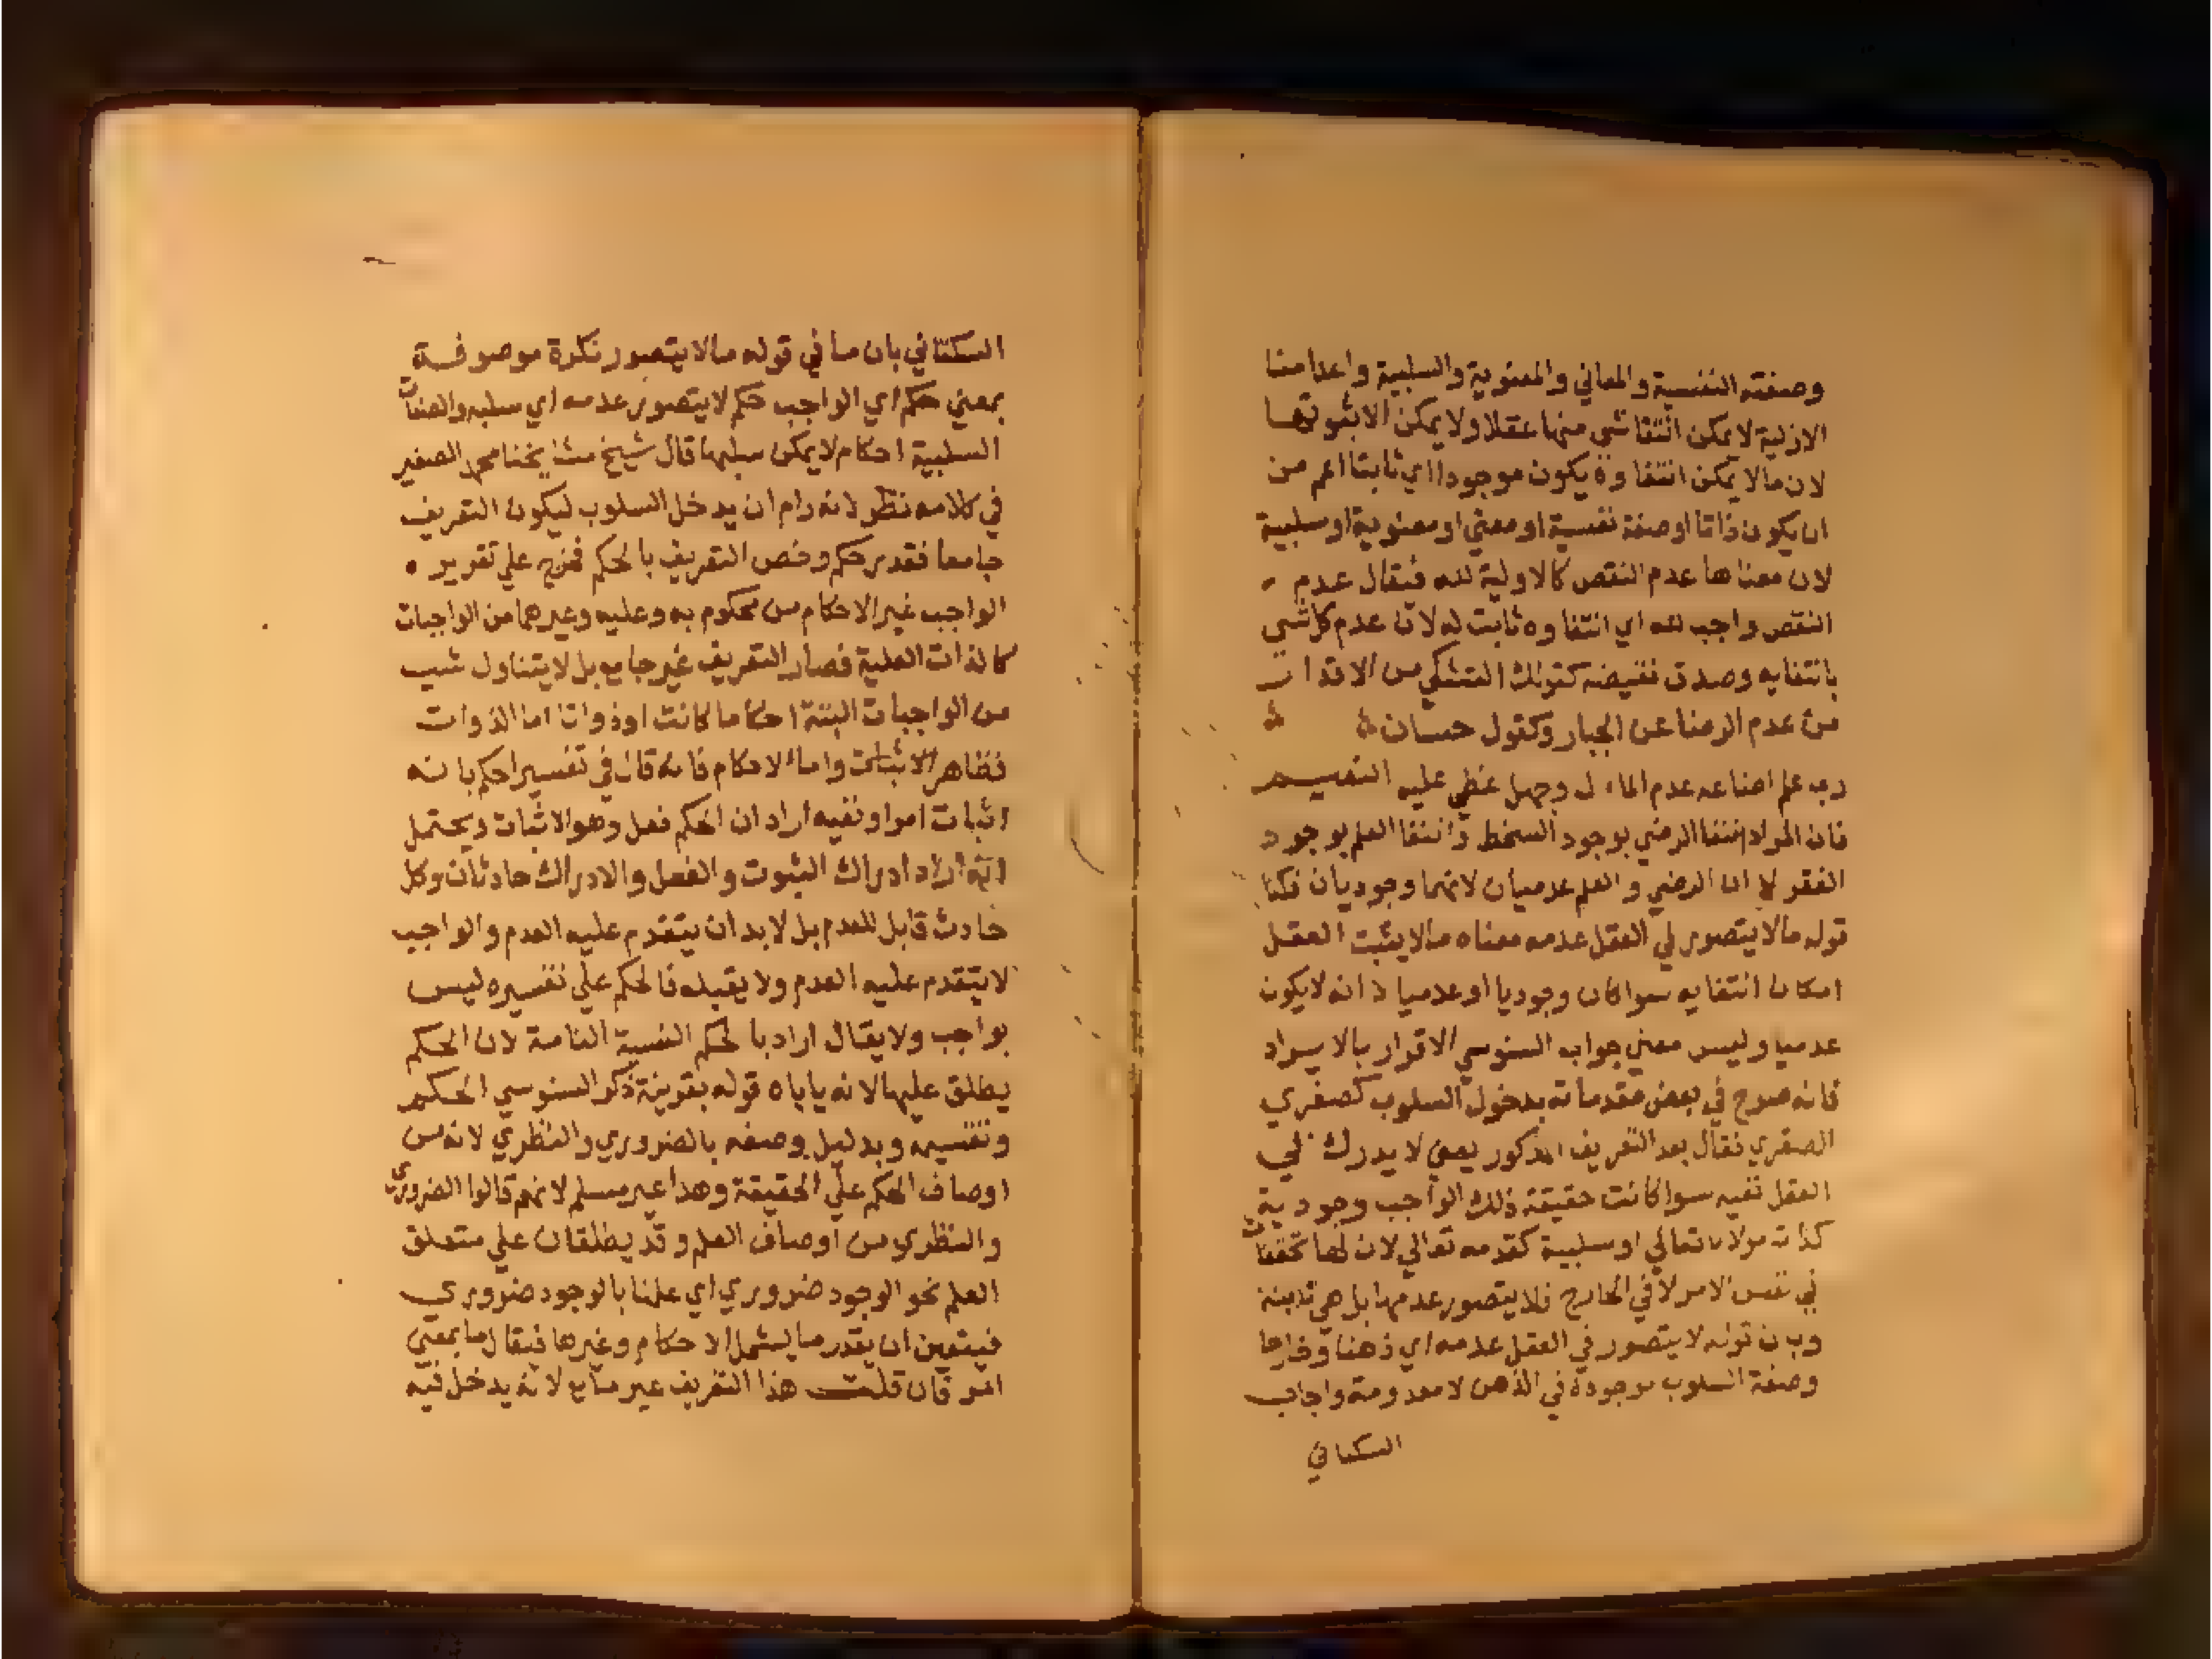 وصفته النفسية والمعاني والمعنوية والسلبية واعدامنا
الازلية لا يمكن انتفا شي منها عقلا ولا يمكن الا ثبوتها
لان مالا يمكن انتفاوه يكون موجودا اي ثابتا اعم من
ان يكون ذاتا او صفة نفسية او معني او معنوية او سلبية
لان معناها عدم النقص كالاولية لله فيقال عدم
النقص واجب لله اي انتفاوه ثابت له لان عدم كل شي
بانتفايه وصدق نقيضه كقولك التشكي من الاقدار
من عدم الرضا عن الجبار وكقول حسان
رب علم اضاعه عدم الما ل وجهل غطي عليه النعيم
فان المراد انتفا الرضي بوجود السخط وانتفا العلم بوجود
الفقر لا ان الرضي والعلم عدميان لانهما وجوديان فكذا
قوله مالا يتصور في العقل عدمه معناه مالا يثبت العقل
امكان انتفايه سوا كان وجوديا او عدميا لا انه لا يكون
عدميا وليس معني جواب السنوسي الاقرار بالايراد
فانه صرح في بعض مقدماته بدخول السلوب كصغري
الصغري فقال بعد التعريف المذكور يعني لا يدرك في
العقل نفيه سوا كانت حقيقة ذلك الواجب وجودية
كذات مولانا تعالي او سلبية كقدمه تعالي لان لها تحققا
في نفس الامر لا في الخارج فلا يتصور عدمها بل هي ثابتة
وبان قوله لا يتصور في العقل عدمه اي ذهنا وخارجا
وصفة السلوب موجودة في الذهن لا معدومة واجاب
السكتاني
السكتاني بان ما في قوله مالا يتصور نكرة موصوفة
بمعني حكم اي الواجب حكم لا يتصور عدمه اي سلبه والصفات
السلبية احكام لا يمكن سلبها قال شيخ مشايخنا محمد الصغير
في كلامه نظر لانه رام ان يدخل السلوب ليكون التعريف
جامعا فقدر حكم وخص التعريف بالحكم فخرج علي تقرير
الواجب غير الاحكام من محكوم به وعليه وغيرهما من الواجبات
كالذات العلية فصار التعريف غير جامع بل لا يتناول شيا
من الواجبات البتة احكاما كانت او ذواتا اما الذوات
فظاهر الاثبات واما الاحكام فانه قال في تفسير احكم بانه
اثبات امر او نفيه اراد ان الحكم فعل وهو الاثبات ويحتمل
انه اراد ادراك الثبوت والفعل والادراك حادثان وكل
حادث قابل للعدم بل لا بد ان يتقدم عليه العدم والواجب
لا يتقدم عليه العدم ولا يقبله فالحكم علي تفسيره ليس
بواجب ولا يقال اراد بالحكم النسبة التامة لان الحكم
يطلق عليها لانه ياباه قوله بقرينة ذكر السنوسي الحكم
وتقسيمه وبدليل وصفه بالضروري والنظري لانه من
اوصاف الحكم علي الحقيقة وهذا غير مسلم لانهم قالوا الضروري
والنظري من اوصاف العلم وقد يطلقان علي متعلق
العلم نحو الوجود ضروري اي علمنا بالوجود ضروري
فيتعين ان يقدر ما يشمل الاحكام وغيرها فيقال ما بمعني
امر فان قلت هذا التعريف غير مانع لانه يدخل فيه